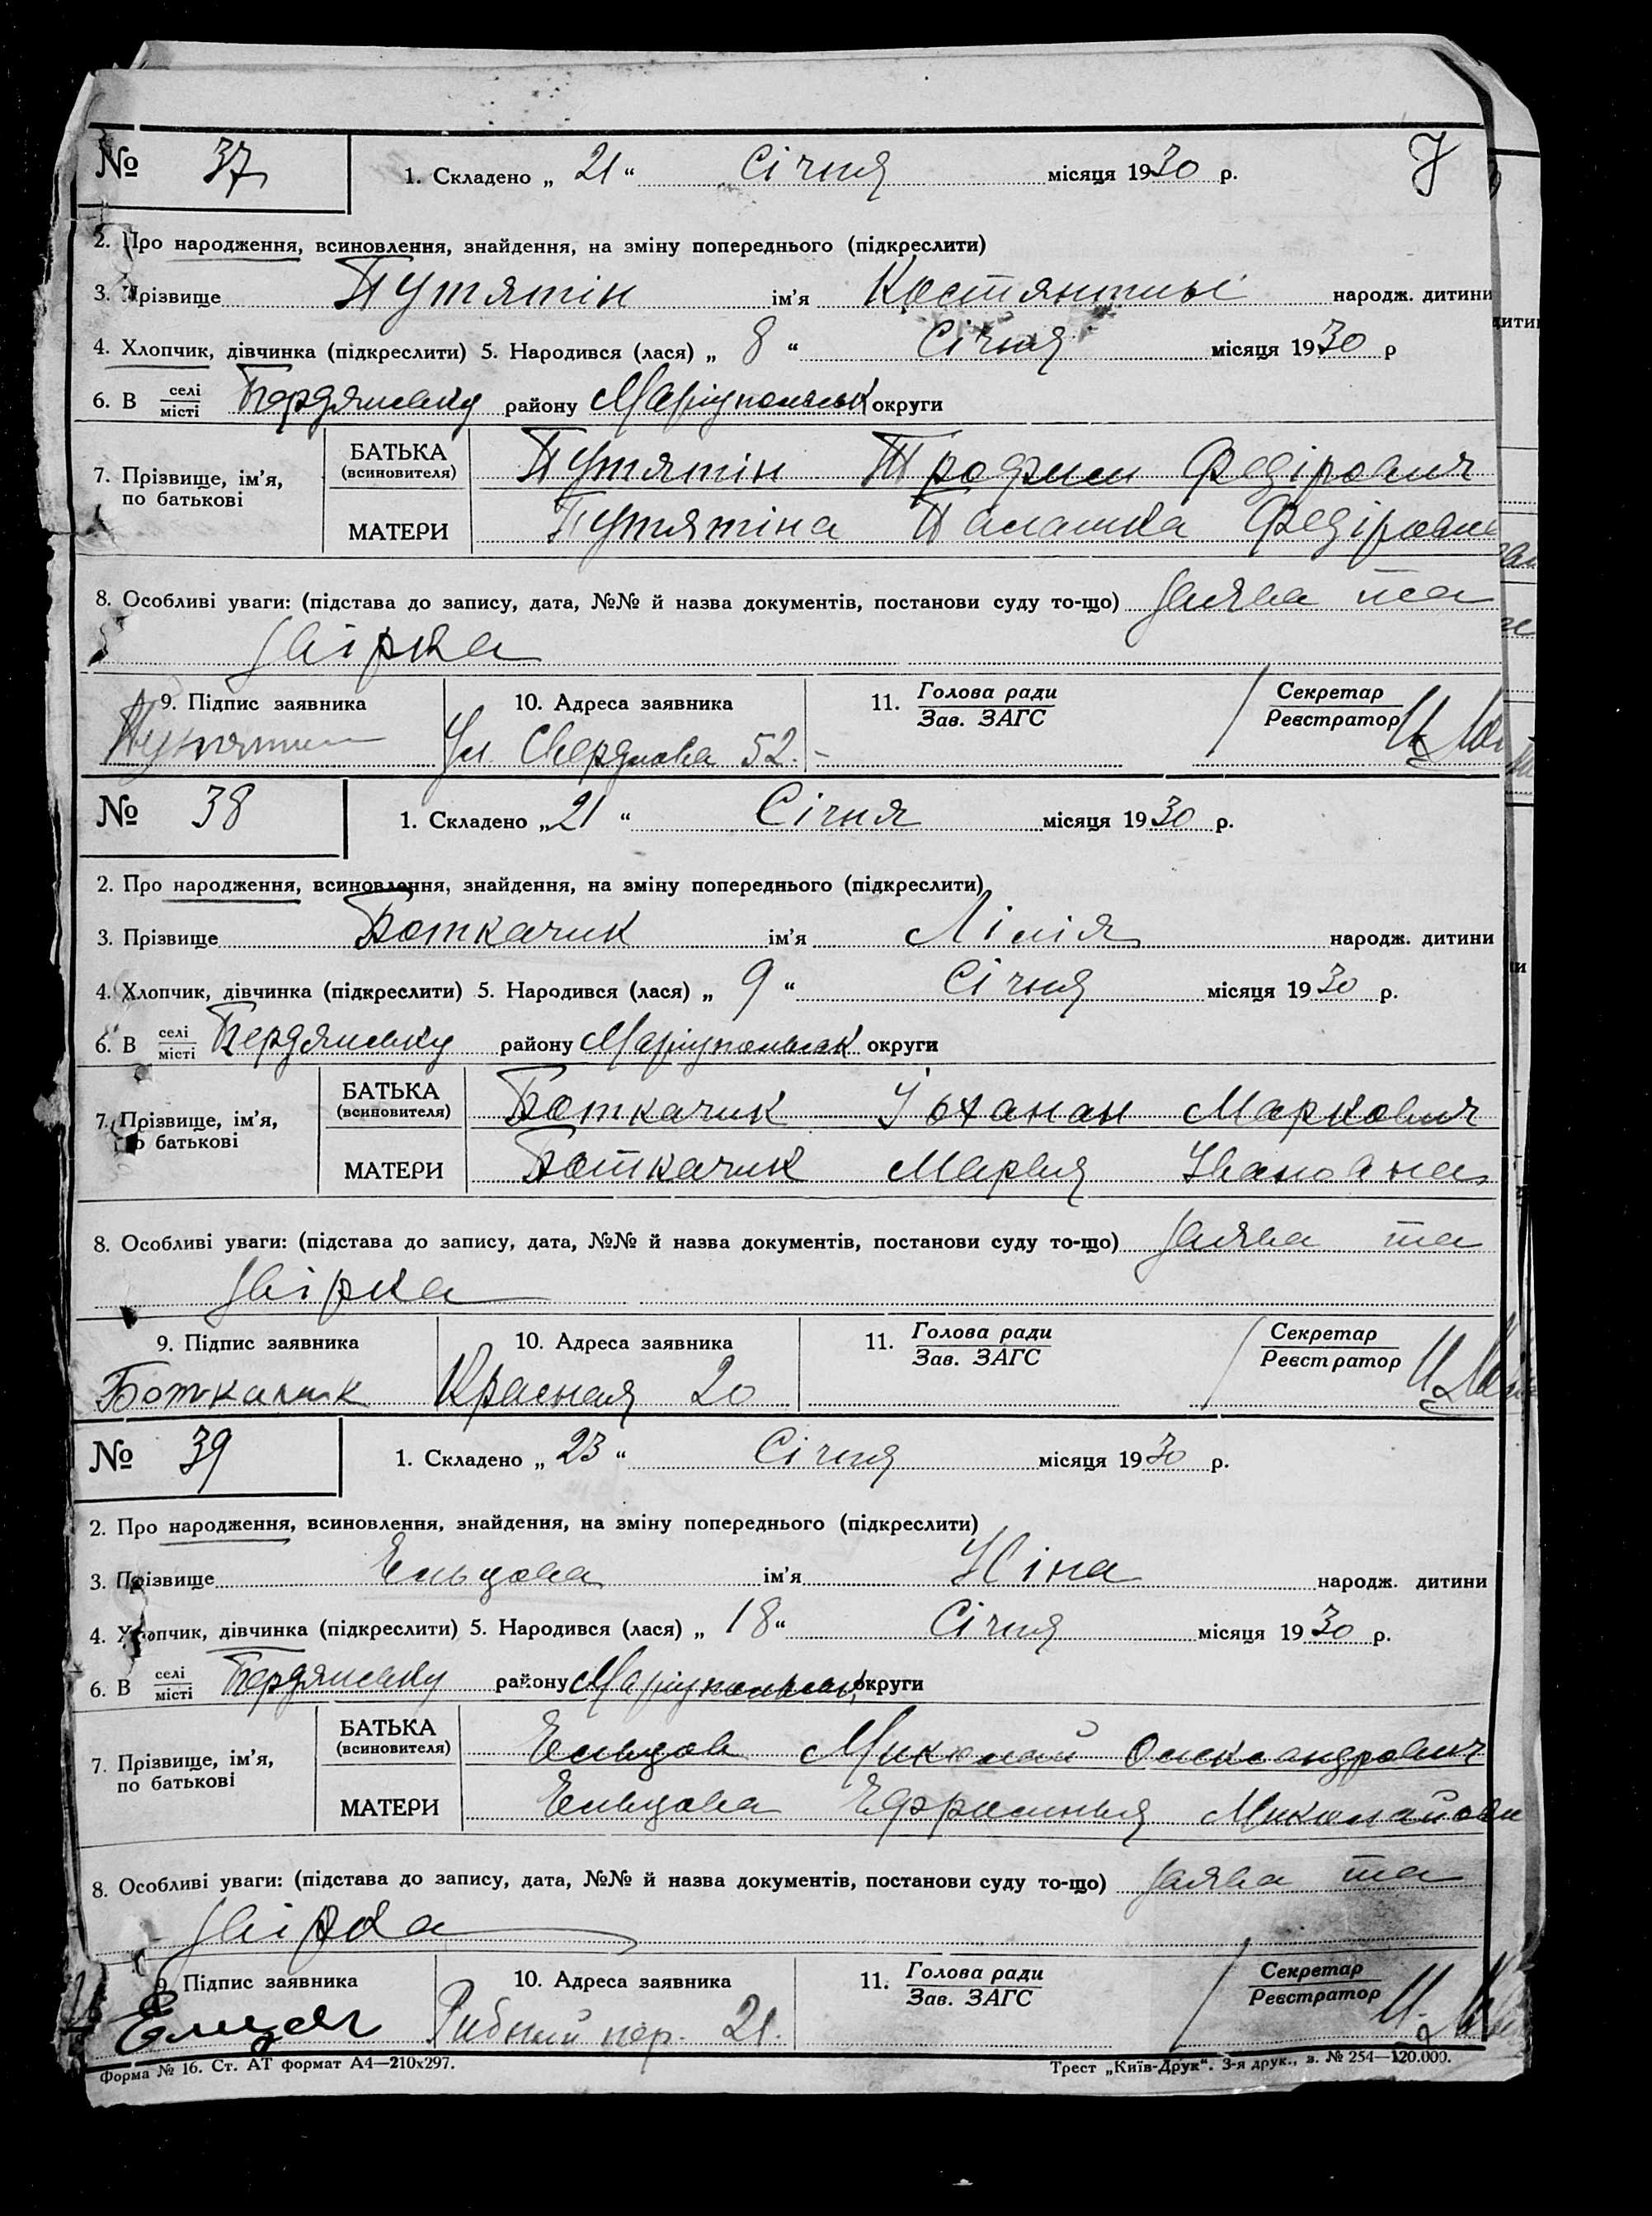 № 37 1. Складено „ 21 “ Січня місяця 1930 р.
2. Про народження, всиновлення, знайдення, на зміну попереднього (підкреслити)
3. Прізвище Путятін ім'я Костянтин народж. дитини
4. Хлопчик, дівчинка (підкреслити) 5. Народився (лася) „ 8 “ Січня місяця 1930 р
6. В селі місті Бердянську району Маріупольськ округи
7. Прізвище, ім'я, по батькові БАТЬКА (всиновителя) Путятін Трофим Федірович
МАТЕРИ Путятіна Палашка Федіровн
8. Особливі уваги: (підстава до запису, дата, №№ й назва документів, постанови суду то-що) Заява та
звірка
9. Підпис заявника 10. Адреса заявника 11. Голова ради Зав. ЗАГС Секретар Реєстратор
Путятин Ул. Свердлова 52.
№ 38 1. Складено „ 21 “ Січня місяця 1930 р.
2. Про народження, всиновлення, знайдення, на зміну попереднього (підкреслити)
3. Прізвище Боткачик ім'я Лілія народж. дитини
4. Хлопчик, дівчинка (підкреслити) 5. Народився (лася) „ 9 “ Січня місяця 1930 р.
6. В селі місті Бердянську району Маріупольськ округи
7. Прізвище, ім'я, по батькові БАТЬКА (всиновителя) Боткачик Іоханан Маркович
МАТЕРИ Боткачик Марія Івановна
8. Особливі уваги: (підстава до запису, дата, №№ й назва документів, постанови суду то-що) Заява та
звірка
9. Підпис заявника 10. Адреса заявника 11. Голова ради Зав. ЗАГС Секретар Реєстратор
Боткачик Красная 20
№ 39 1. Складено „ 23 “ Січня місяця 1930 р.
2. Про народження, всиновлення, знайдення, на зміну попереднього (підкреслити)
3. Прізвище Ельцова ім'я Ніна народж. дитини
4. Хлопчик, дівчинка (підкреслити) 5. Народився (лася) „ 18 “ Січня місяця 1930 р.
6. В селі місті Бердянську району Маріупольськ округи
7. Прізвище, ім'я, по батькові БАТЬКА (всиновителя) Ельцов Миколай Олександрович
МАТЕРИ Ельцова Ефрасинья Миколайовн
8. Особливі уваги: (підстава до запису, дата, №№ й назва документів, постанови суду то-що) Заява та
звірка
9. Підпис заявника 10. Адреса заявника 11. Голова ради Зав. ЗАГС Секретар Реєстратор
Елцов Рибний пер. 21.
Форма № 16. Ст. АТ формат А4—210х297. Трест „Київ-Друк“. 3-я друк., з. № 254—120.000.